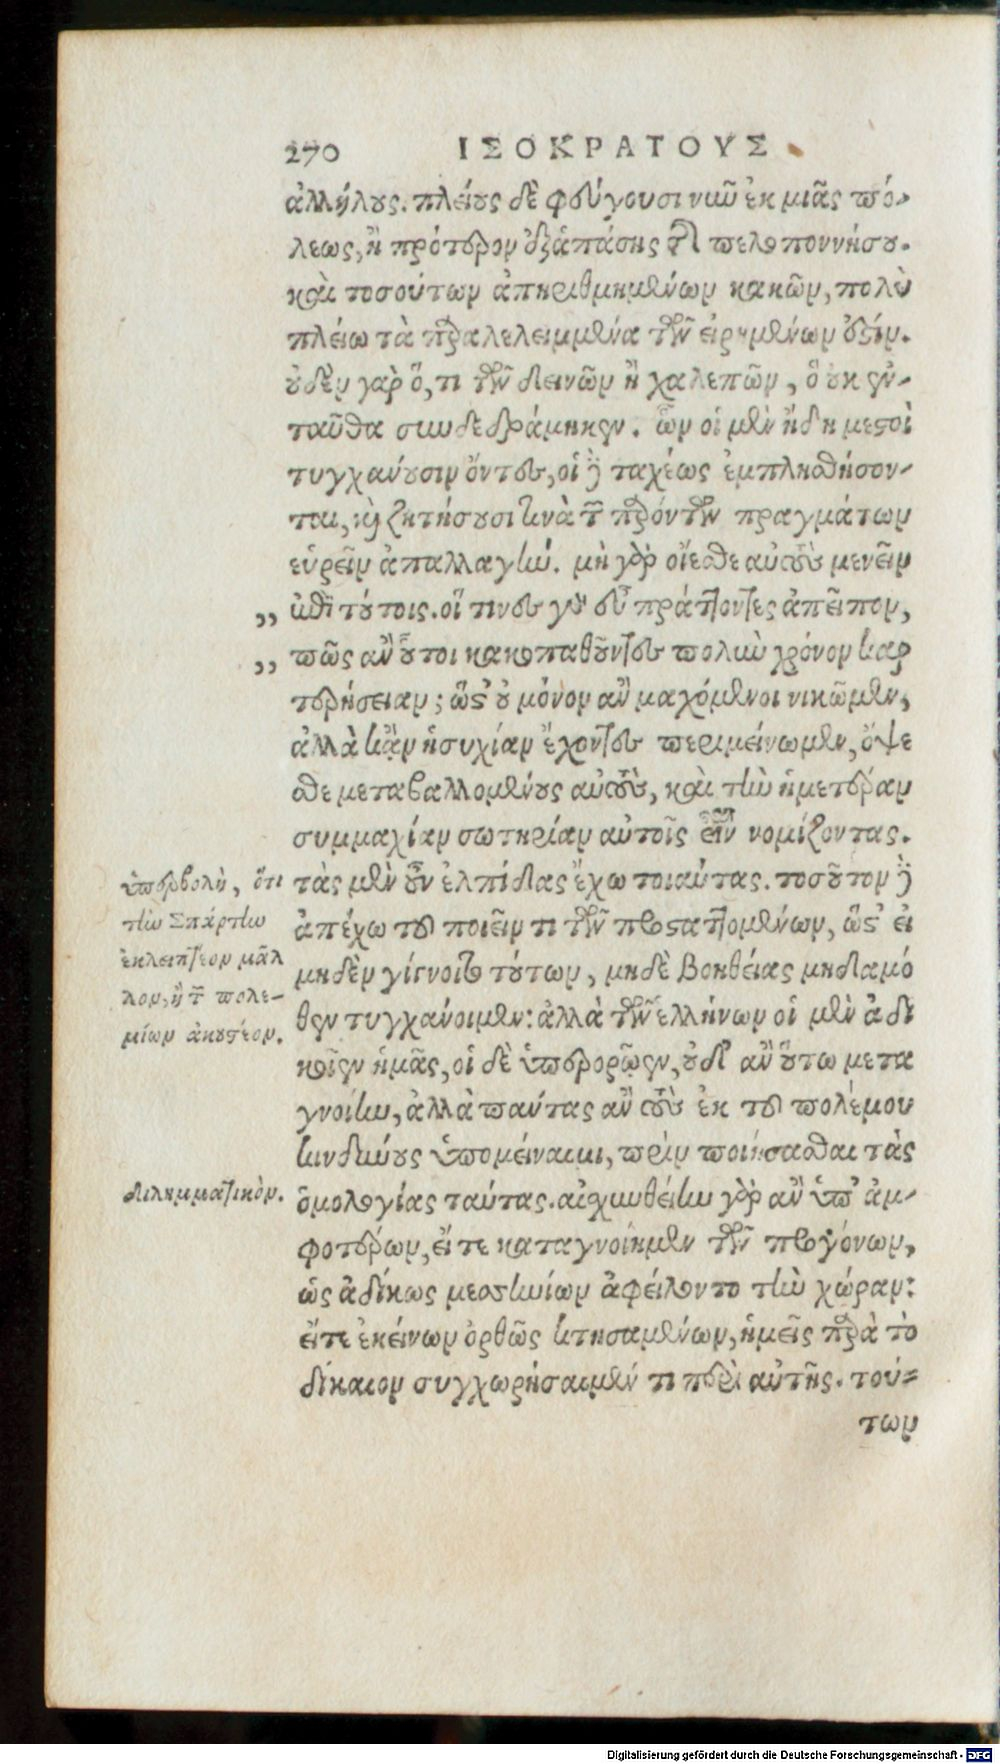 270 ΙΣΟΚΡΑΤΟΥΣ
ἀλλήλους. πλείους δὲ φεύγουσι νῦν ἐκ μιᾶς πό-
λεως, ἢ πρότερον ἐξ ἁπάσης τῆς πελοποννήσου.
καὶ τοσούτων ἀπηριθμημένων κακῶν, πολὺ
πλείω τὰ παραλελειμμένα τῶν εἰρημένων ἐστίν.
οὐδὲν γὰρ ὅ, τι τῶν δεινῶν ἢ χαλεπῶν, ὃ οὐκ ἐν-
ταῦθα συνδεδράμηκεν. ὧν οἱ μὲν ἤδη μεστοὶ
τυγχάνουσιν ὄντες, οἱ δὲ ταχέως ἐμπλησθήσον-
ται, καὶ ζητήσουσι τινὰ τῶν παρόντων πραγμάτων
εὑρεῖν ἀπαλλαγήν. μὴ γὰρ οἴεσθε αὐτοὺς μενεῖν
„ ἐπὶ τούτοις. οἵ τινες γὰρ εὖ πράττοντες ἀπεῖπον,
„ πῶς ἂν οὗτοι κακοπαθοῦντες πολὺν χρόνον καρ
τερήσειαν; ὥστ' οὐ μόνον ἂν μαχόμενοι νικῶμεν,
ἀλλὰ κἂν ἡσυχίαν ἔχοντες περιμείνωμεν, ὄψε
σθε μεταβαλλομένους αὐτοὺς, καὶ τὴν ἡμετέραν
συμμαχίαν σωτηρίαν αὐτοῖς εἶναι νομίζοντας.
τὰς μὲν οὖν ἐλπίδας ἔχω τοιαύτας. τοσοῦτον δὲ
ἀπέχω τοῦ ποιεῖν τι τῶν προσταττομένων, ὥστ' εἰ
μηδὲν γίγνοιτο τούτων, μηδὲ βοηθείας μηδαμό
θεν τυγχάνοιμεν: ἀλλὰ τῶν ἑλλήνων οἱ μὲν ἀδι
κοῖεν ἡμᾶς, οἱ δὲ ὑπερορῷεν, οὐδ' ἂν οὕτω μετα
γνοίην, ἀλλὰ πάντας ἂν τοὺς ἐκ τοῦ πολέμου
κινδύνους ὑπομείναιμι, πρὶν ποιήσασθαι τὰς
ὁμολογίας ταύτας. αἰσχυνθείην γὰρ ἂν ὑπ' ἀμ-
φοτέρων, εἴ τε καταγνοίημεν τῶν προγόνων,
ὡς ἀδίκως μεσσηνίων ἀφείλοντο τὴν χώραν:
εἴτε ἐκείνων ὀρθῶς κτησαμένων, ἡμεῖς παρὰ τὸ
δίκαιον συγχωρήσαιμέν τι περὶ αὐτῆς. τού-
των
ὑπερβολὴ, ὅτι
τὴν Σπάρτην
ἐκλειπτέον μᾶλ
λον, ἢ τῶν πολε-
μίων ἀκουστέον.
διλημματικὸν.
Digitalisierung gefördert durch die Deutsche Forschungsgemeinschaft - DFG